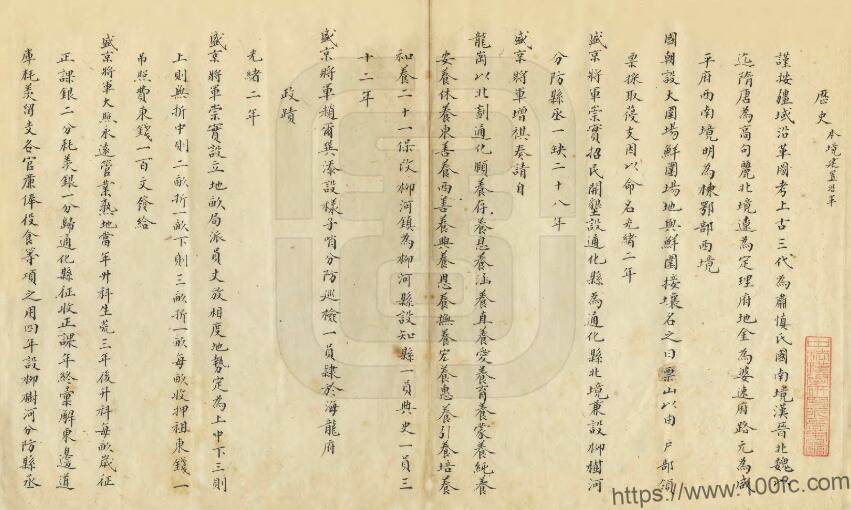 歷史 本境建置沿革
謹按疆域沿革圖考上古三代為肅慎氏國南境漢晉北魏
迄隋唐為高句麗北境遼為定理府地金為婆速府路元為咸
平府西南境明為棟鄂部西境
國朝設大圍場鮮圍場地與鮮圍接壤名之曰票山以由戶部領
票採取葠支因以命名光緒二年
盛京將軍崇實招民開墾設通化縣為通化縣北境兼設柳樹河
分防縣丞一缺二十八年
盛京將軍增祺奏請自
龍崗以北劃通化頤養存養息養涵養直養愛養育養蒙養純養
安養休養東善養西善養興養恩養撫養宏養惠養引養培養
和養二十一保改柳河鎮為柳河縣設知縣一員典史一員三
十二年
盛京將軍趙爾巽添設樣子哨分防巡檢一員隸於海龍府
政蹟
光緒二年
盛京將軍崇實設立地畝局派員丈放相度地勢定為上中下三則
上則無折中則二畝折一畝下則三畝折一畝每畝收押租東錢一
吊照費東錢一百文發給
盛京將軍大照永遠管業熟地當年升科生荒三年後升科每畝歲征
正課銀二分耗羨銀一分歸通化縣征收正課年終彙解東邊道
庫耗羨留支各官廉俸役食等項之用四年設柳樹河分防縣丞
https://www.400fc.com